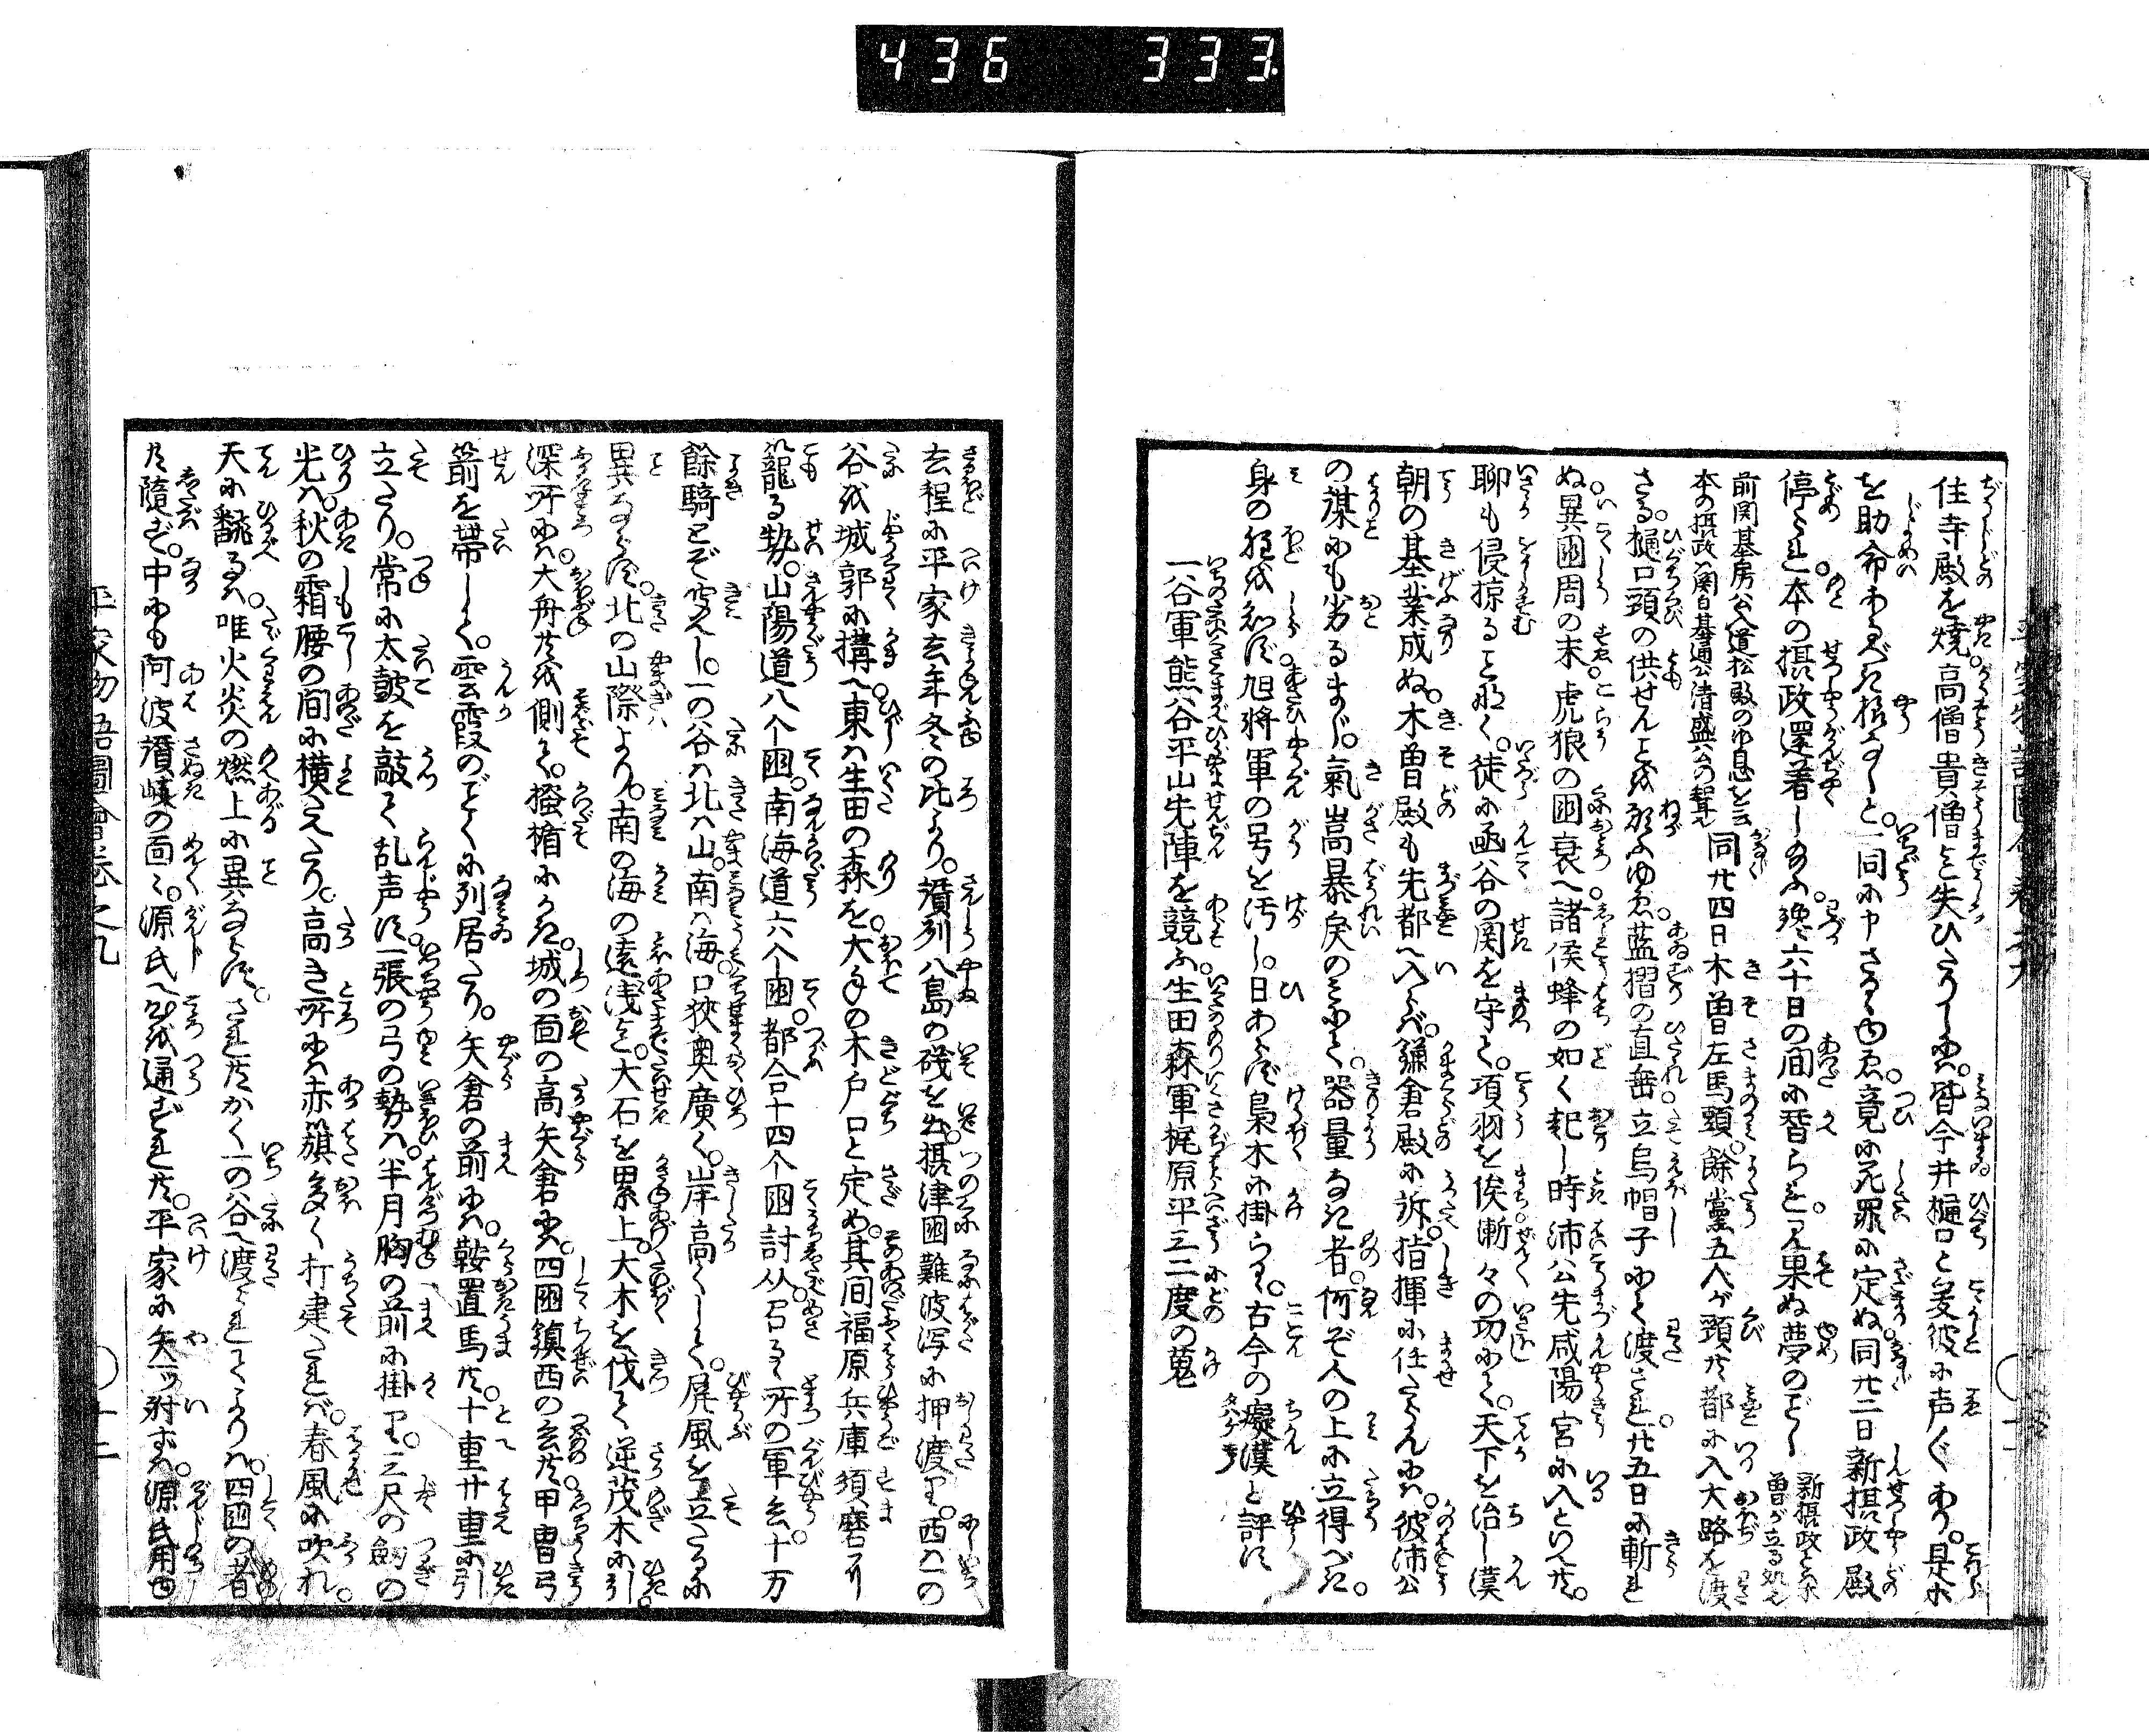 436 333
住寺殿を焼高僧貴僧を失ひたりしは皆今井樋口と爰彼に声〴〵あり是等
を助命あるべき様なしと一同に申さるゝゆゑ竟に死罪に定ぬ同廿二日新摂政殿
停られ本の摂政還着し給ふ纔六十日の間に替られ見果ぬ夢のごとし
新摂政とは木曽が立る処也
前関基房公入道松殿の御息を云
本の摂政ハ関白基通公清盛公の聟也
同廿四日木曽左馬頭餘黨五人が頸共都に入大路を渡
さる樋口頸の供せんことを願ふゆゑ藍摺の直垂立烏帽子にて渡され廿五日に斬れ
ぬ異國周の末虎狼の國衰へ諸侯蜂の如く起し時沛公先咸陽宮に入といへ共
聊も侵掠ることなく徒に函谷の関を守て項羽を俟漸々の功にて天下を治し漢
朝の基業成ぬ木曽殿も先都へ入らば鎌倉殿に訴指揮に任せたらんには彼沛公
の謀にも劣るまじ氣嵩暴戻のみにて器量なき者何ぞ人の上に立得べき
身の程を知ず旭將軍の号を汚し日あらず梟木に掛らる古今の癡漢と評す
一谷軍熊谷平山先陣を競ふ生田森軍梶原平三二度の蒐
去程に平家去年冬の比より讃列八島の磯を出摂津國難波潟に押渡り西ハ一の
谷を城郭に構へ東ハ生田の森を大手の木戸口と定め其間福原兵庫須磨に
籠る勢山陽道八个國南海道六个國都合十四个國討从召るゝ所の軍兵十万
餘騎とぞ聞えし一の谷ハ北ハ山南ハ海口狭奥廣く岸高くして屏風を立たるに
異ならず北の山際より南の海の遠浅まで大石を累上大木を伐て逆茂木に引
深所にハ大舟共を側て掻楯にかき城の面の高矢倉にハ四國鎮西の兵共甲冑弓
箭を帯して雲霞のごとくに列居たり矢倉の前にハ鞍置馬共十重廿重に引
立たり常に太鼓を敲て乱声す一張の弓の勢ハ半月胸の前に掛り三尺の劔の
光ハ秋の霜腰の間に横たえたり高き所にハ赤旗多く打建たれバ春風に吹れ
天に飜るハ唯火炎の燃上に異ならずされ共かく一の谷へ渡られてよりハ四國の者
共隨ず中にも阿波讃岐の面々源氏へ心を通ずれ共平家に矢一ッ射ずハ源氏用ゆ
平家物語圖會巻之九